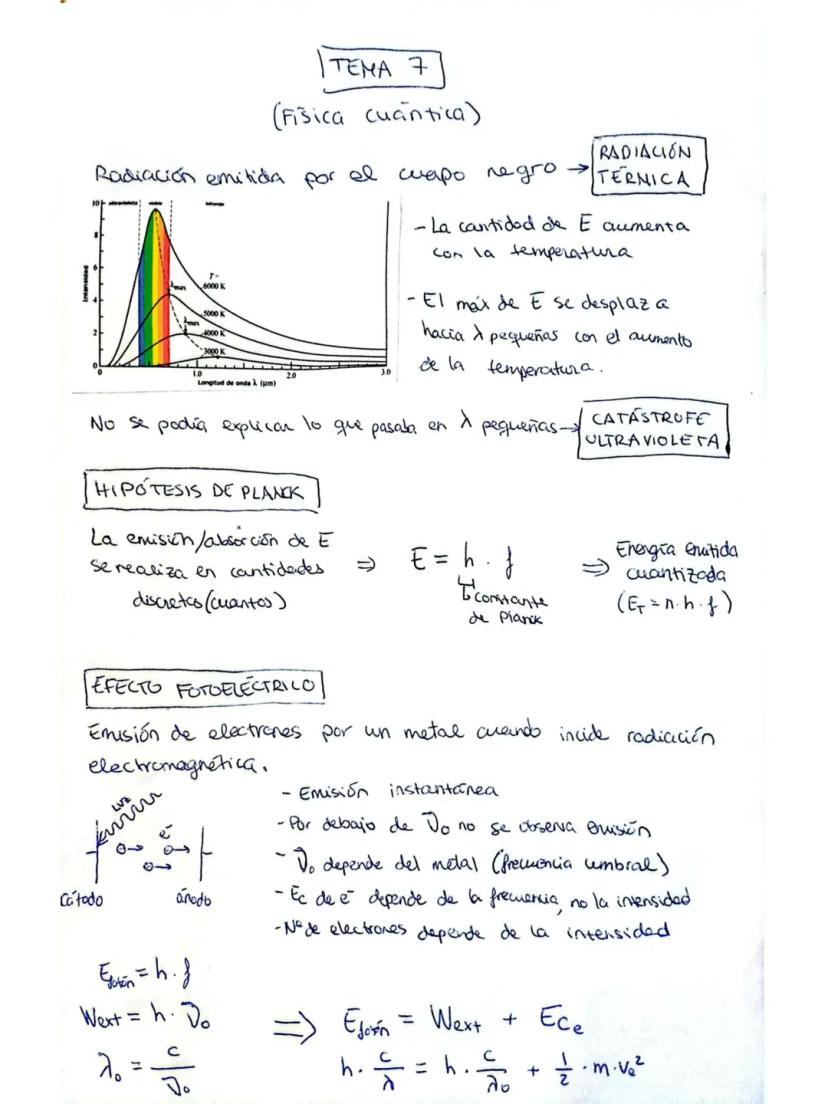 TEMA 7
(Física cuántica)
Radiación emitida por el cuerpo negro → RADIACIÓN
TÉRMICA
10 ultravioleta visible infrarrojo
8
6
4
2
0
Intensidad
T=
6000 K
λmax
5000 K
λmax
4000 K
3000 K
0 1.0 2.0 3.0
Longitud de onda λ (μm)
- La cantidad de E aumenta
con la temperatura
- El máx de E se desplaza
hacia λ pequeñas con el aumento
de la temperatura.
No se podía explicar lo que pasaba en λ pequeñas → CATÁSTROFE
ULTRAVIOLETA
HIPÓTESIS DE PLANCK
La emisión/absorción de E
se realiza en cantidades
discretas (cuantos)
⇒ E = h · f
constante
de Planck
⇒ Energía emitida
cuantizada
(E_T = n · h · f)
EFECTO FOTOELÉCTRICO
Emisión de electrones por un metal cuando incide radiación
electromagnética.
LUZ
e⁻
Cátodo ánodo
- Emisión instantánea
- Por debajo de ν₀ no se observa emisión
- ν₀ depende del metal (frecuencia umbral)
- Ec de e⁻ depende de la frecuencia, no la intensidad
- Nº de electrones depende de la intensidad
E_fotón = h · f
Wext = h · ν₀
λ₀ = c / ν₀
⇒ E_fotón = Wext + Ec_e
h · c/λ = h · c/λ₀ + 1/2 · m · v_e²